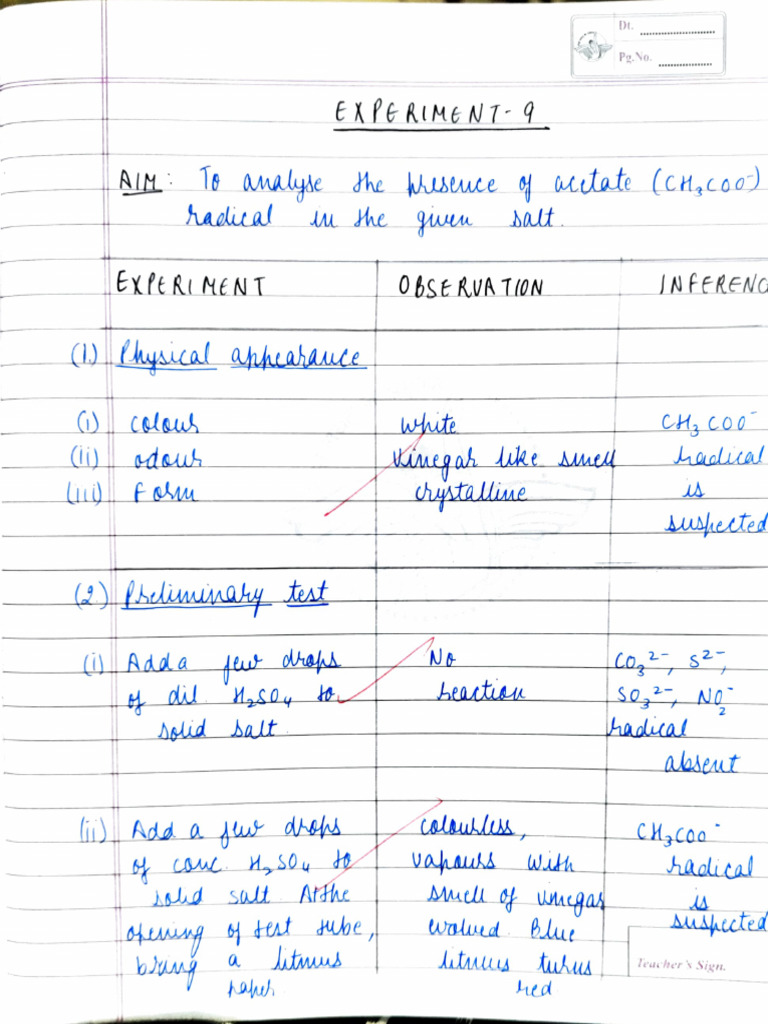 Dt. ........................
Pg.No. ..................
EXPERIMENT-9
AIM: To analyse the presence of acetate (CH₃COO⁻)
radical in the given salt.
EXPERIMENT OBSERVATION INFERENC
(1.) Physical appearance
(i) colour white CH₃COO⁻
(ii) odour vinegar like smell radical
(iii) Form crystalline is
suspected
(2.) Preliminary test
(i) Add a few drops No CO₃²⁻, S²⁻,
of dil. H₂SO₄ to reaction SO₃²⁻, NO₂⁻
solid salt. radical
absent
(ii) Add a few drops colourless, CH₃COO⁻
of conc. H₂SO₄ to vapours with radical
solid salt. At the smell of vinegar is
suspected
opening of test tube, evolved. Blue
bring a litmus litmus turns
paper. red
Teacher's Sign.